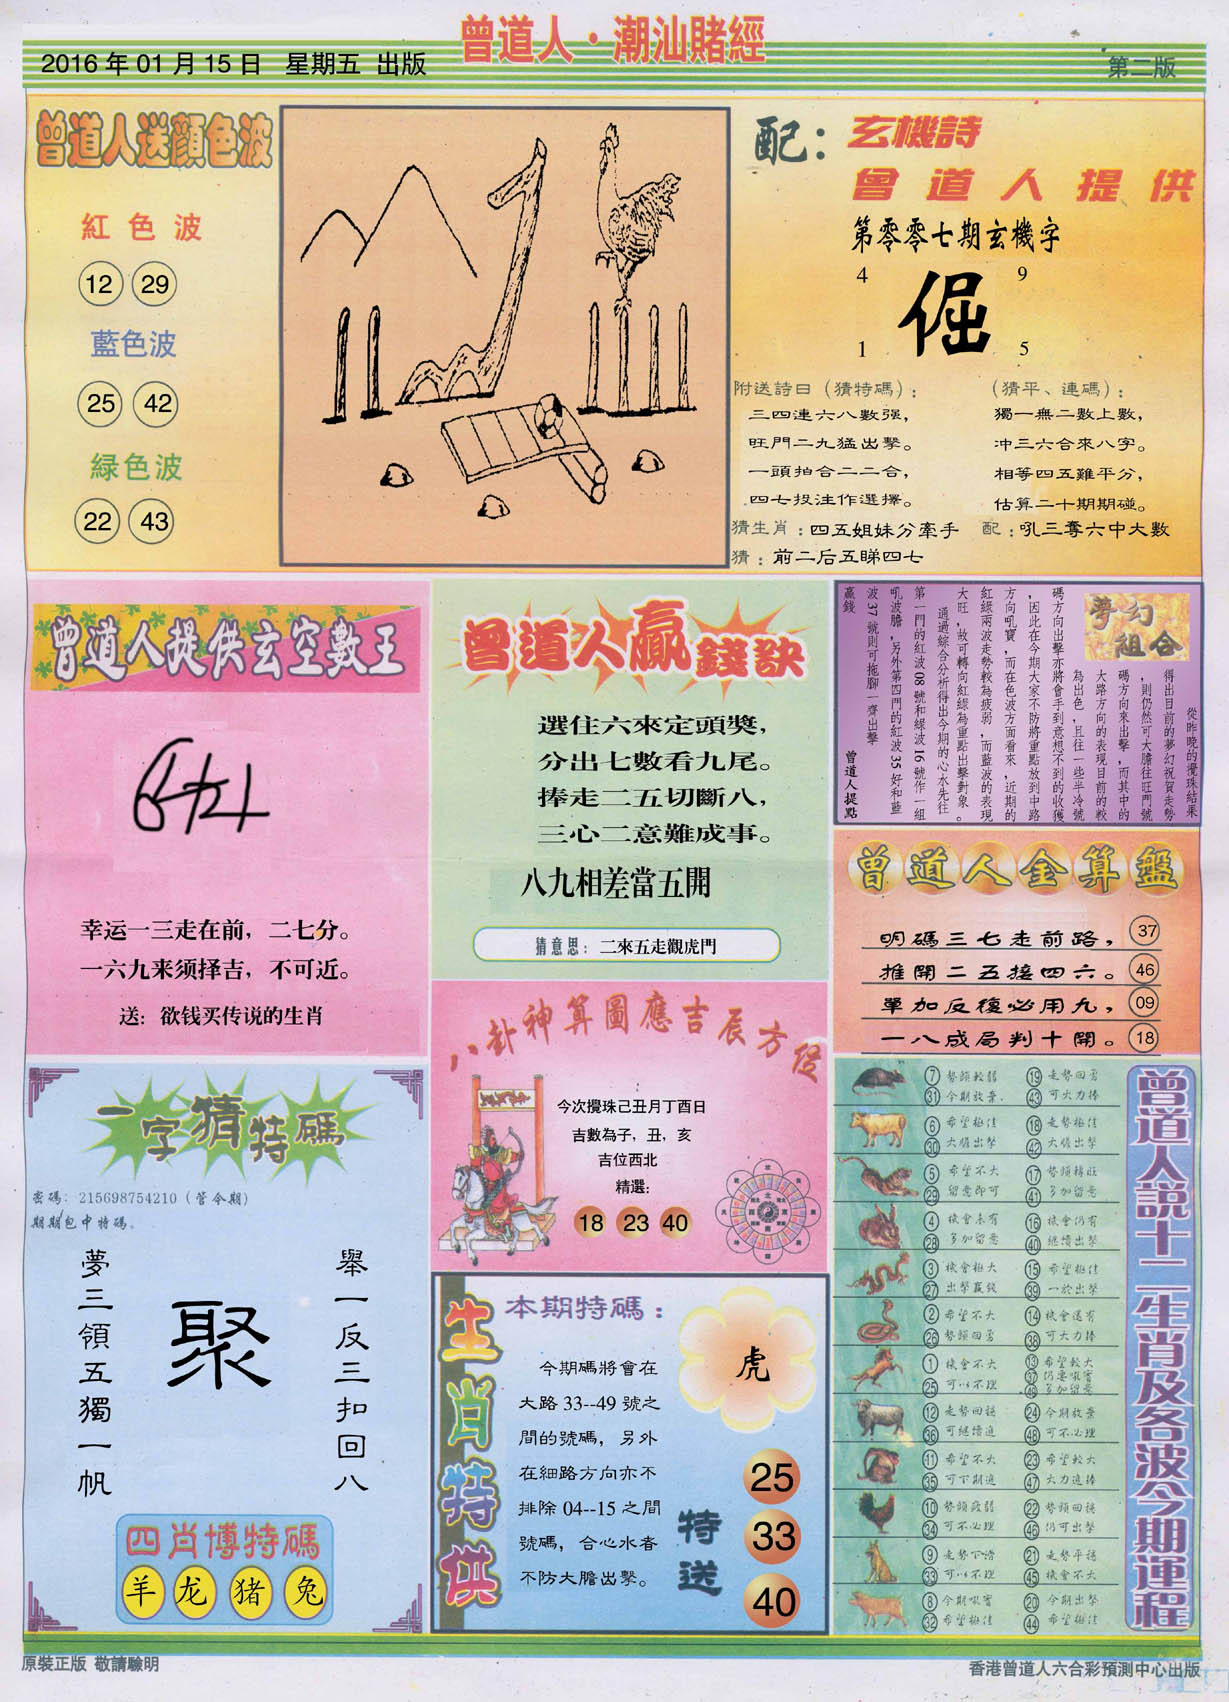 曾道人·潮汕賭經
2016 年 01 月 15 日 星期五 出版
第二版
曾道人送顔色波
紅色波
12 29
藍色波
25 42
緑色波
22 43
配：玄機詩
曾道人提供
第零零七期玄機字
4 9
倔
1 5
附送詩日（猜特碼）：
三四連六八數强，
旺門二九猛出擊。
一頭拍合二二合，
四七投注作選擇。
（猜平、連碼）：
獨一無二數上數，
冲三六合來八字。
相等四五難平分，
估算二十期期碰。
猜生肖：四五姐妹分牽手 配：吼三奪六中大數
猜：前二后五睇四七
曾道人提供玄空數王
幸运一三走在前，二七分。
一六九来须择吉，不可近。
送：欲钱买传说的生肖
曾道人贏錢訣
選住六來定頭獎，
分出七數看九尾。
捧走二五切斷八，
三心二意難成事。
八九相差當五開
猜意思：二來五走觀虎門
夢幻組合
從昨晚的攪珠結果
得出目前的夢幻祝賀走勢
，則仍然可大膽往旺門號
碼方向來出擊，而其中的
大路方向的表現目前的較
為出色，且往一些半冷號
碼方向出擊亦將會手到意想不到的收獲
，因此在今期大家不防將重點放到中路
方向吼寶，而在色波方面看來，近期的
紅綠兩波走勢較為疲弱，而藍波的表現
大旺，故可轉向紅綠為重點出擊對象。
通過綜合分析得出今期的心水先往
第一門的紅波 08 號和緑波 16 號作一組
吼波膽，另外第四門的紅波 35 好和藍
波 37 號則可拖腳一齊出擊
贏錢
曾道人提點
曾道人金算盤
明碼三七走前路， 37
推開二五接四六。 46
單加反復必用九， 09
一八成局判十開。 18
一字猜特碼
密碼：215698754210（管今期）
期期包中特碼。
舉一反三扣回八
聚
夢三領五獨一帆
四肖博特碼
羊 龙 豬 兔
八卦神算圖應吉辰方位
今次攪珠己丑月丁酉日
吉數為子，丑，亥
吉位西北
精選：
18 23 40
生肖特供
本期特碼：
虎
今期碼將會在
大路 33--49 號之
間的號碼，另外
在細路方向亦不
排除 04--15 之間
號碼，合心水者
不防大膽出擊。
特送
25
33
40
曾道人説十二生肖及各波今期運程
7 勢頭較弱 19 走勢回勇
31 今期放棄 43 可大力捧
6 希望極佳 18 走勢極佳
30 大膽出擊 42 大膽出擊
5 希望不大 17 勢頭轉旺
29 留意即可 41 多加留意
4 機會未有 16 機會仍有
28 多加留意 40 繼續出擊
3 機會極大 15 希望極佳
27 出擊贏錢 39 一於出擊
2 希望不大 14 機會還有
26 勢頭回勇 38 可大力捧
1 機會不大 13 希望較大
37 仍要吼實
25 可以不理 49 多加留意
12 走勢回穩 24 今期放棄
36 可繼續追 48 可不必理
11 希望不大 23 希望較大
35 可下期追 47 大力追捧
10 勢頭疲弱 22 勢頭回穩
34 可不必理 46 仍可出擊
9 走勢下滑 21 走勢平穩
33 可以不理 45 機會不大
8 今期吼實 20 今期出擊
32 希望極佳 44 希望極佳
原裝正版 敬請驗明
香港曾道人六合彩預測中心出版